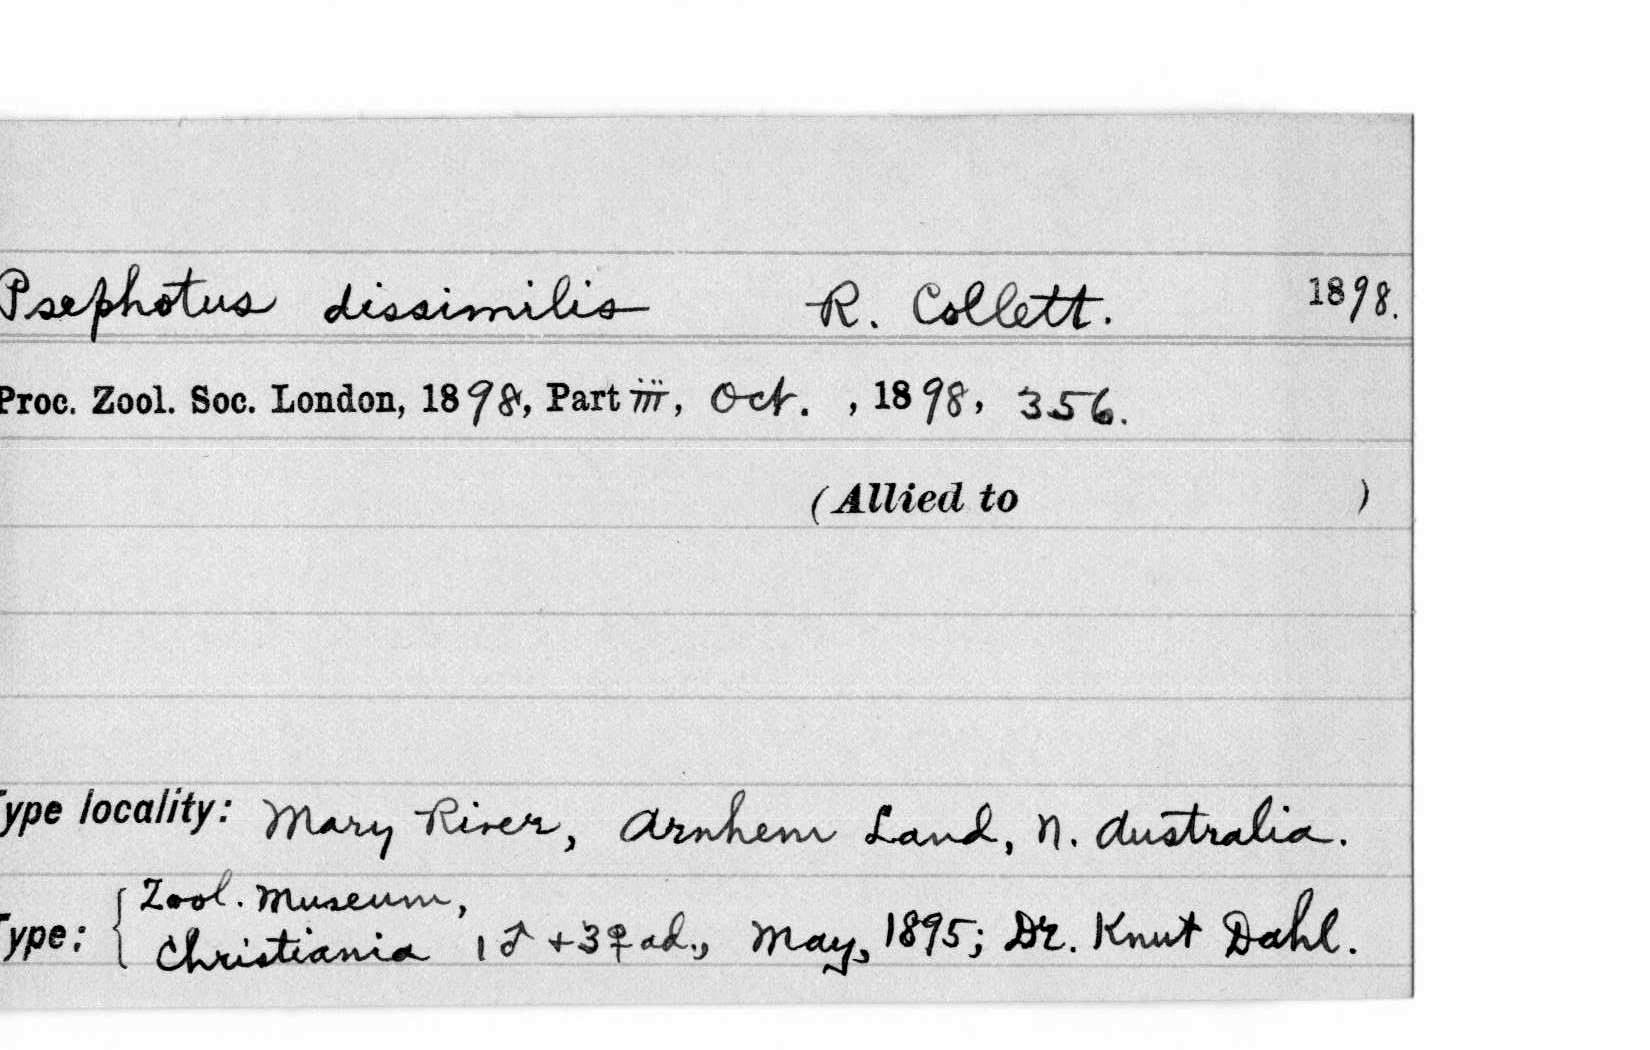 Psephotus dissimilis R. Collett. 1898.
Proc. Zool. Soc. London, 1898, Part iii, Oct. , 1898, 356.
(Allied to )
Type locality: Mary River, Arnhem Land, N. Australia.
Type: { Zool. Museum,
Christiania 1♂ + 3♀ ad., May, 1895; Dr. Knut Dahl.